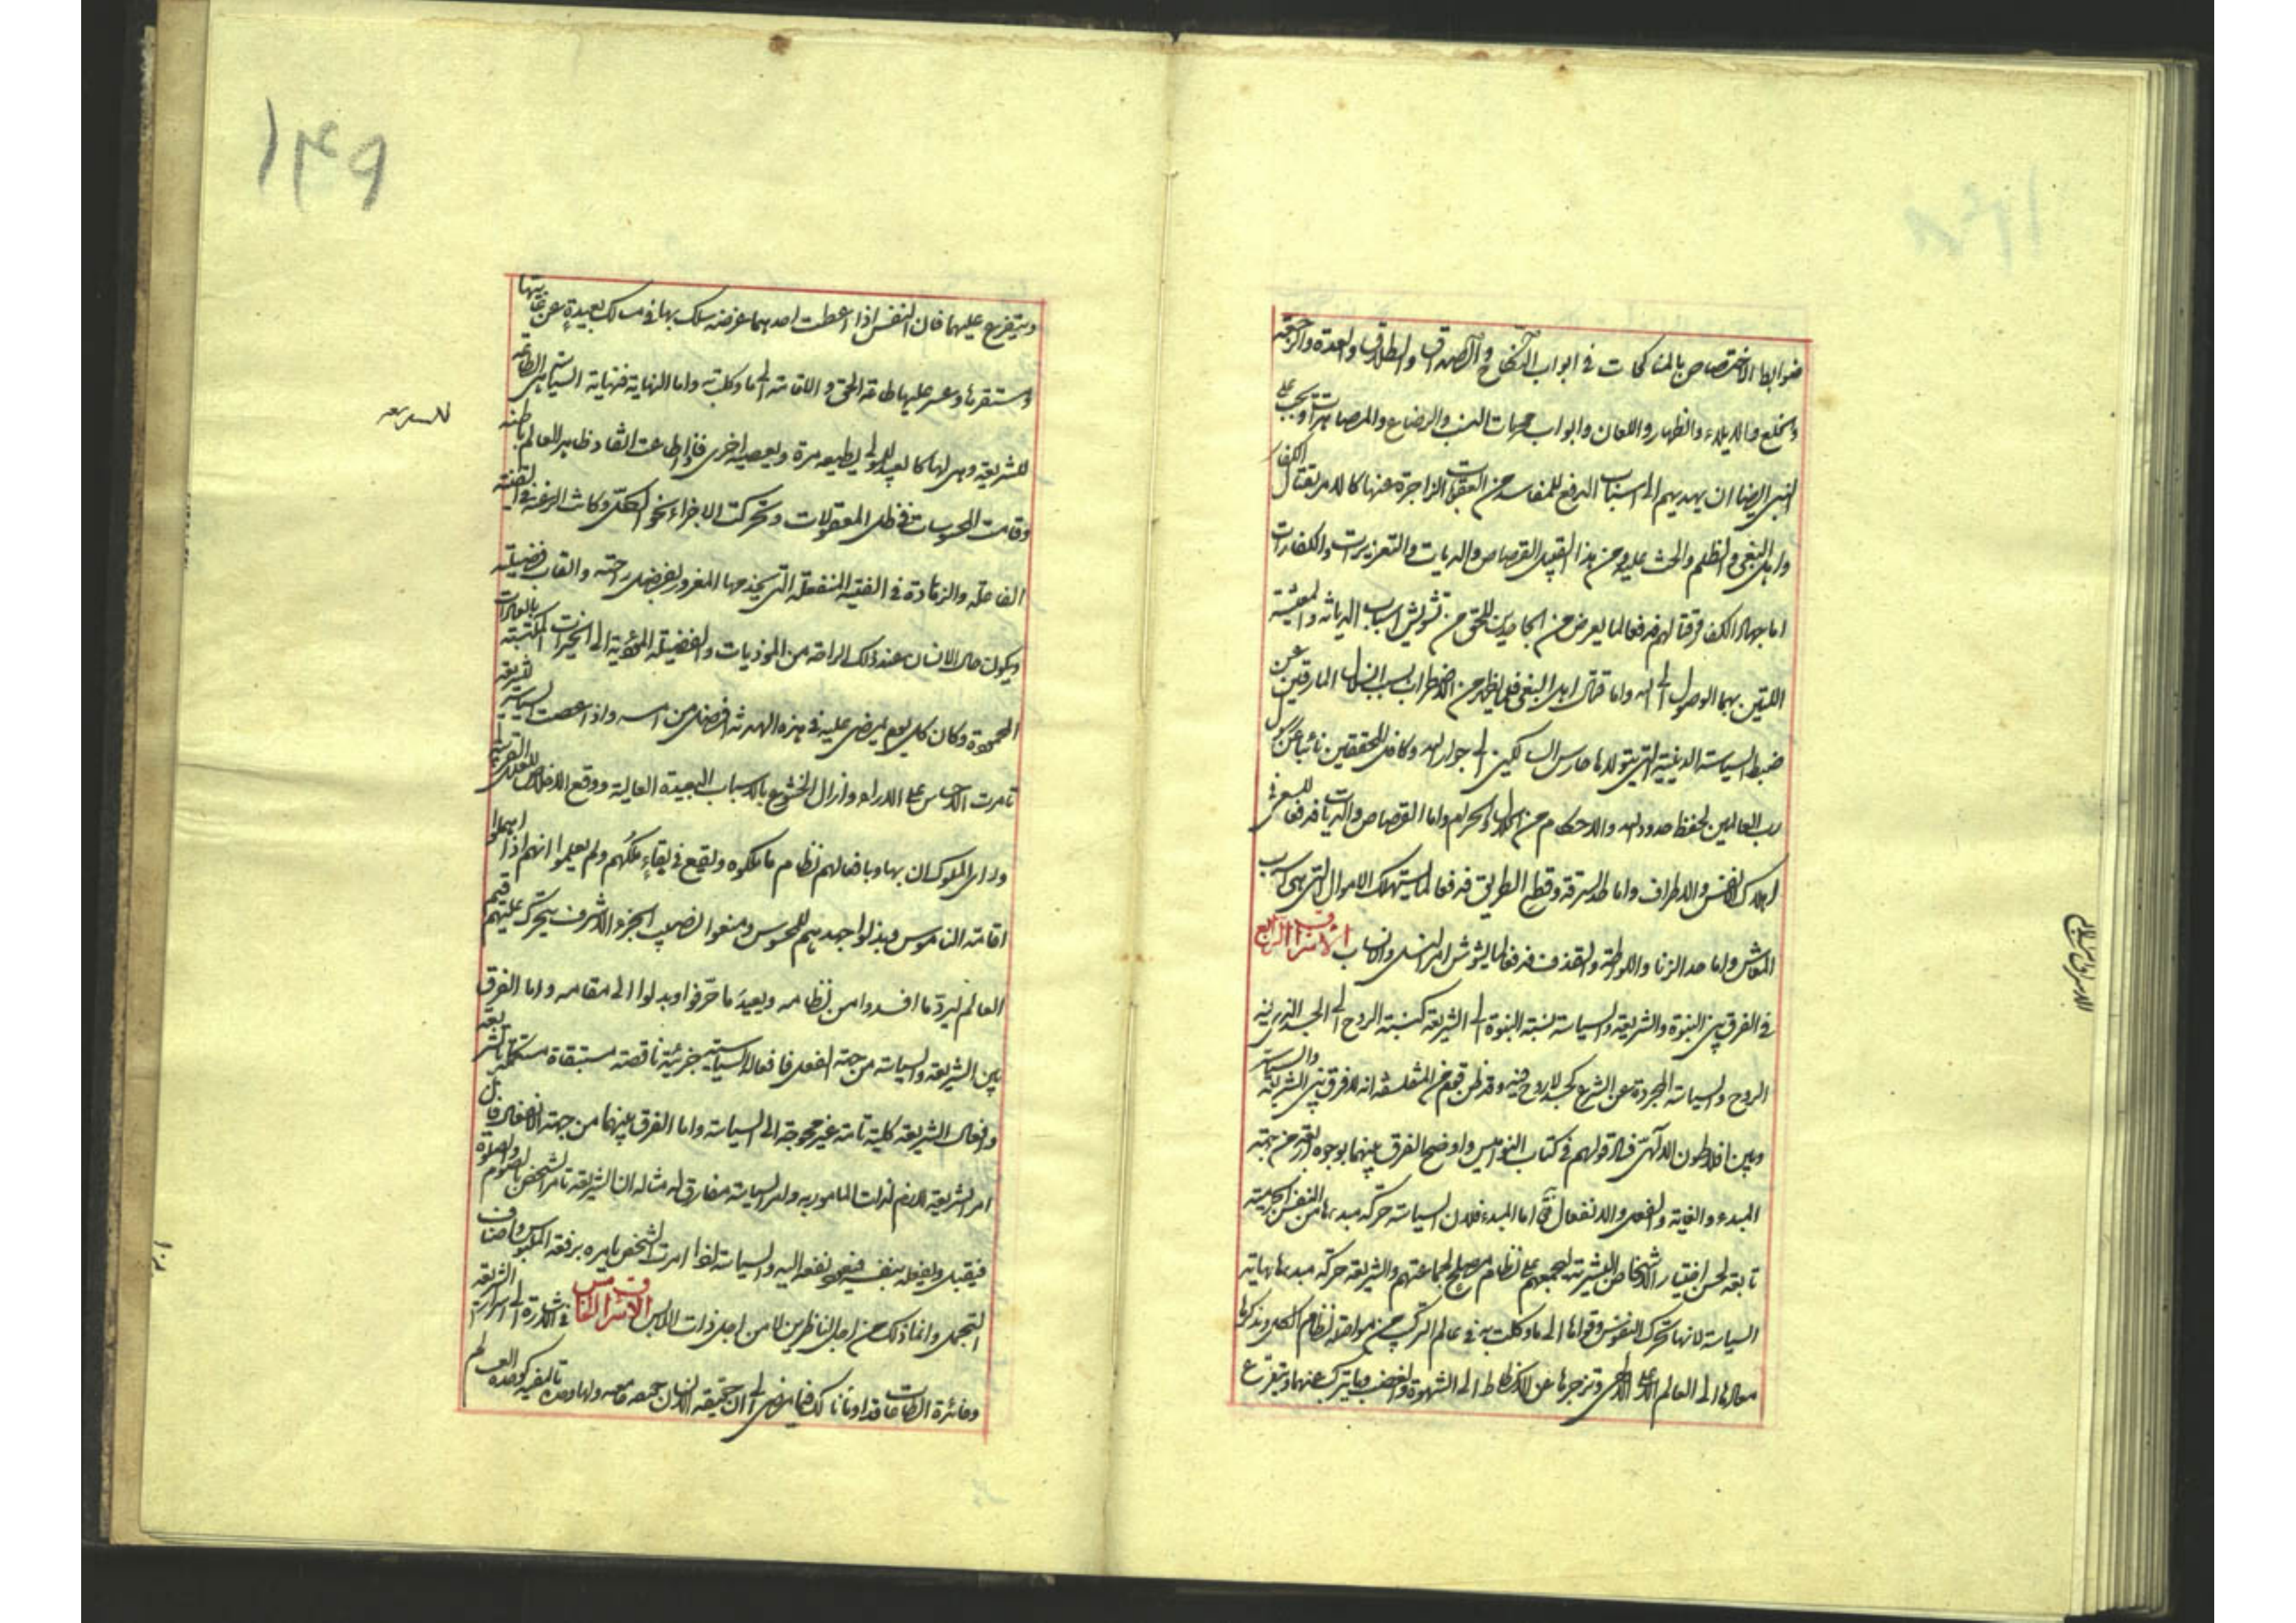 ضوابط الاختصاص بالمناكحات في ابواب النكاح والصداق والطلاق والعدة والرجعة
والخلع والايلاء والظهار واللعان وابواب محرمات النسب والرضاع والمصاهرات ويجب على
النبي ايضا ان يهديهم الى اسباب الدفع للمفاسد من العقوبات الزاجرة عنها كالامر بقتال الكفار
واهل البغي والظلم والحث عليه ومن هذا القبيل القصاص والديات والتعزيرات والكفارات
اما جهاد الكفار وقتالهم فدفعا لما يعرض من الجاحدين للحق من تشويش اسباب الديانة والمعيشة
اللتين بهما الوصول الى الله واما قتال اهل البغي فلما يظهر من الاضطراب بسبب انسلال المارقين عن
ضبط السياسة الدينية التي يتولاها حارس السالكين الى جوار الله وكافل المحققين نائبا عن رسول
رب العالمين لحفظ حدود الله والاحكام من الحلال والحرام واما القصاص والديات فدفعا للسعي في
اهلاك الانفس والاطراف واما حد السرقة وقطع الطريق فدفعا لما يستهلك الاموال التي هي اسباب
المعاش واما حد الزنا واللواطة والقذف فدفعا لما يشوش امر النسل والانساب الاشراق الرابع
في الفرق بين النبوة والشريعة والسياسة نسبة النبوة الى الشريعة كنسبة الروح الى الجسد الذي فيه
الروح والسياسة المجردة عن الشرع كجسد لا روح فيه وقد ظن قوم من المتفلسفة انه لا فرق بين الشريعة والسياسة
وبين افلاطون الالهي فساد قولهم في كتاب النواميس واوضح الفرق بينهما بوجوه اربعة من جهة
المبدء والغاية والفعل والانفعال قال اما المبدء فلان السياسة حركة مبدءها من النفس الجزئية
تابعة لحسن اختيار الاشخاص البشرية ليجمعهم على نظام مصلح لجماعتهم والشريعة حركة مبدءها نهاية
السياسة لانها تحرك النفوس وقواها الى ما وكلت به في عالم التركيب من مواصلة نظام الكل وتذكرها
معادها الى العالم الاعلى الالهي وتزجرها عن الانحطاط الى الشهوة والغضب وما يتركب عنهما ويتفرع
١٤٩
ويتفرع عليهما فان النفس اذا اعطت احدهما غرضه سلك بها في مسالك بعيدة عن غايتها
ومستقرها وعسر عليها طاقة الحق والاقامة الى ما وكلت به واما النهاية فنهاية السياسة هي الطاعة
للشريعة وهي لها كالعبد للمولى يطيعه مرة ويعصيه اخرى فاذا اطاعته انقاد ظاهر العالم باطنه
وقامت المحسوسات في ظل المعقولات وتحركت الاجزاء نحو الكل وكانت الرغبة في القنية
الفاعلة والزهادة في القنية المنفعلة التي يخدمها المغرور بغرض راحته واتعاب فضيلته
ويكون حال الانسان عند ذلك الراحة من الموذيات والفضيلة المودية الى الخيرات المكتسبة بالعادات
المحمودة وكان كل يوم يمضى عليه في هذه الهدنة افضل من امسه واذا عصت السياسة للشريعة
تامرت الاحساس على الاراء وازال الخشوع بالاسباب البعيدة العالية ووقع الاخلاص للعلل القريبة
وراى الملوك ان بها وبافعالهم نظام ما ملكوه وليقع في بقاء ملكهم ولم يعلموا انهم اذا اهملوا
اقامة الناموس وبذلوا جهدهم للمحسوس ومنعوا نصيب الجزء الاشرف يتحرك عليهم قيم
العالم ليرد ما افسدوا من نظامه ويعيد ما حرفوا وبدلوا الى مقامه واما الفرق
بين الشريعة والسياسة من جهة الفعل فافعال السياسة جزئية ناقصة مستبقاة مستكملة بالشريعة
وافعال الشريعة كلية تامة غير محوجة الى السياسة واما الفرق بينهما من جهة الانفعال فان
امر الشريعة لازم لذات المامور به وامر السياسة مفارق له مثاله ان الشريعة تامر الشخص بالصوم والصلوة
فيقبل ويفعله بنفسه فيعود نفعه اليه والسياسة اذا امرت الشخص تامره برفعة الملبوس واصناف
التجمل وانما ذلك من اجل الناظرين لا من اجل ذات اللابس الاشراق الخامس في الاشارة الى اسرار الشريعة
وفائدة الطاعات قد اومأنا لك فيما مضى الى ان حقيقة الانسان جمعية ولها وحدة تاليفية كوحدة العالم
للشريعة